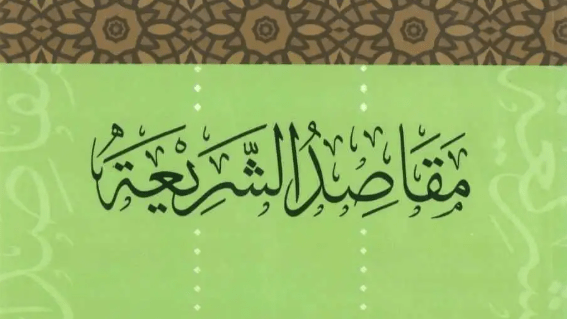 مَقَاصِدُ الشَّرِيعَةِ